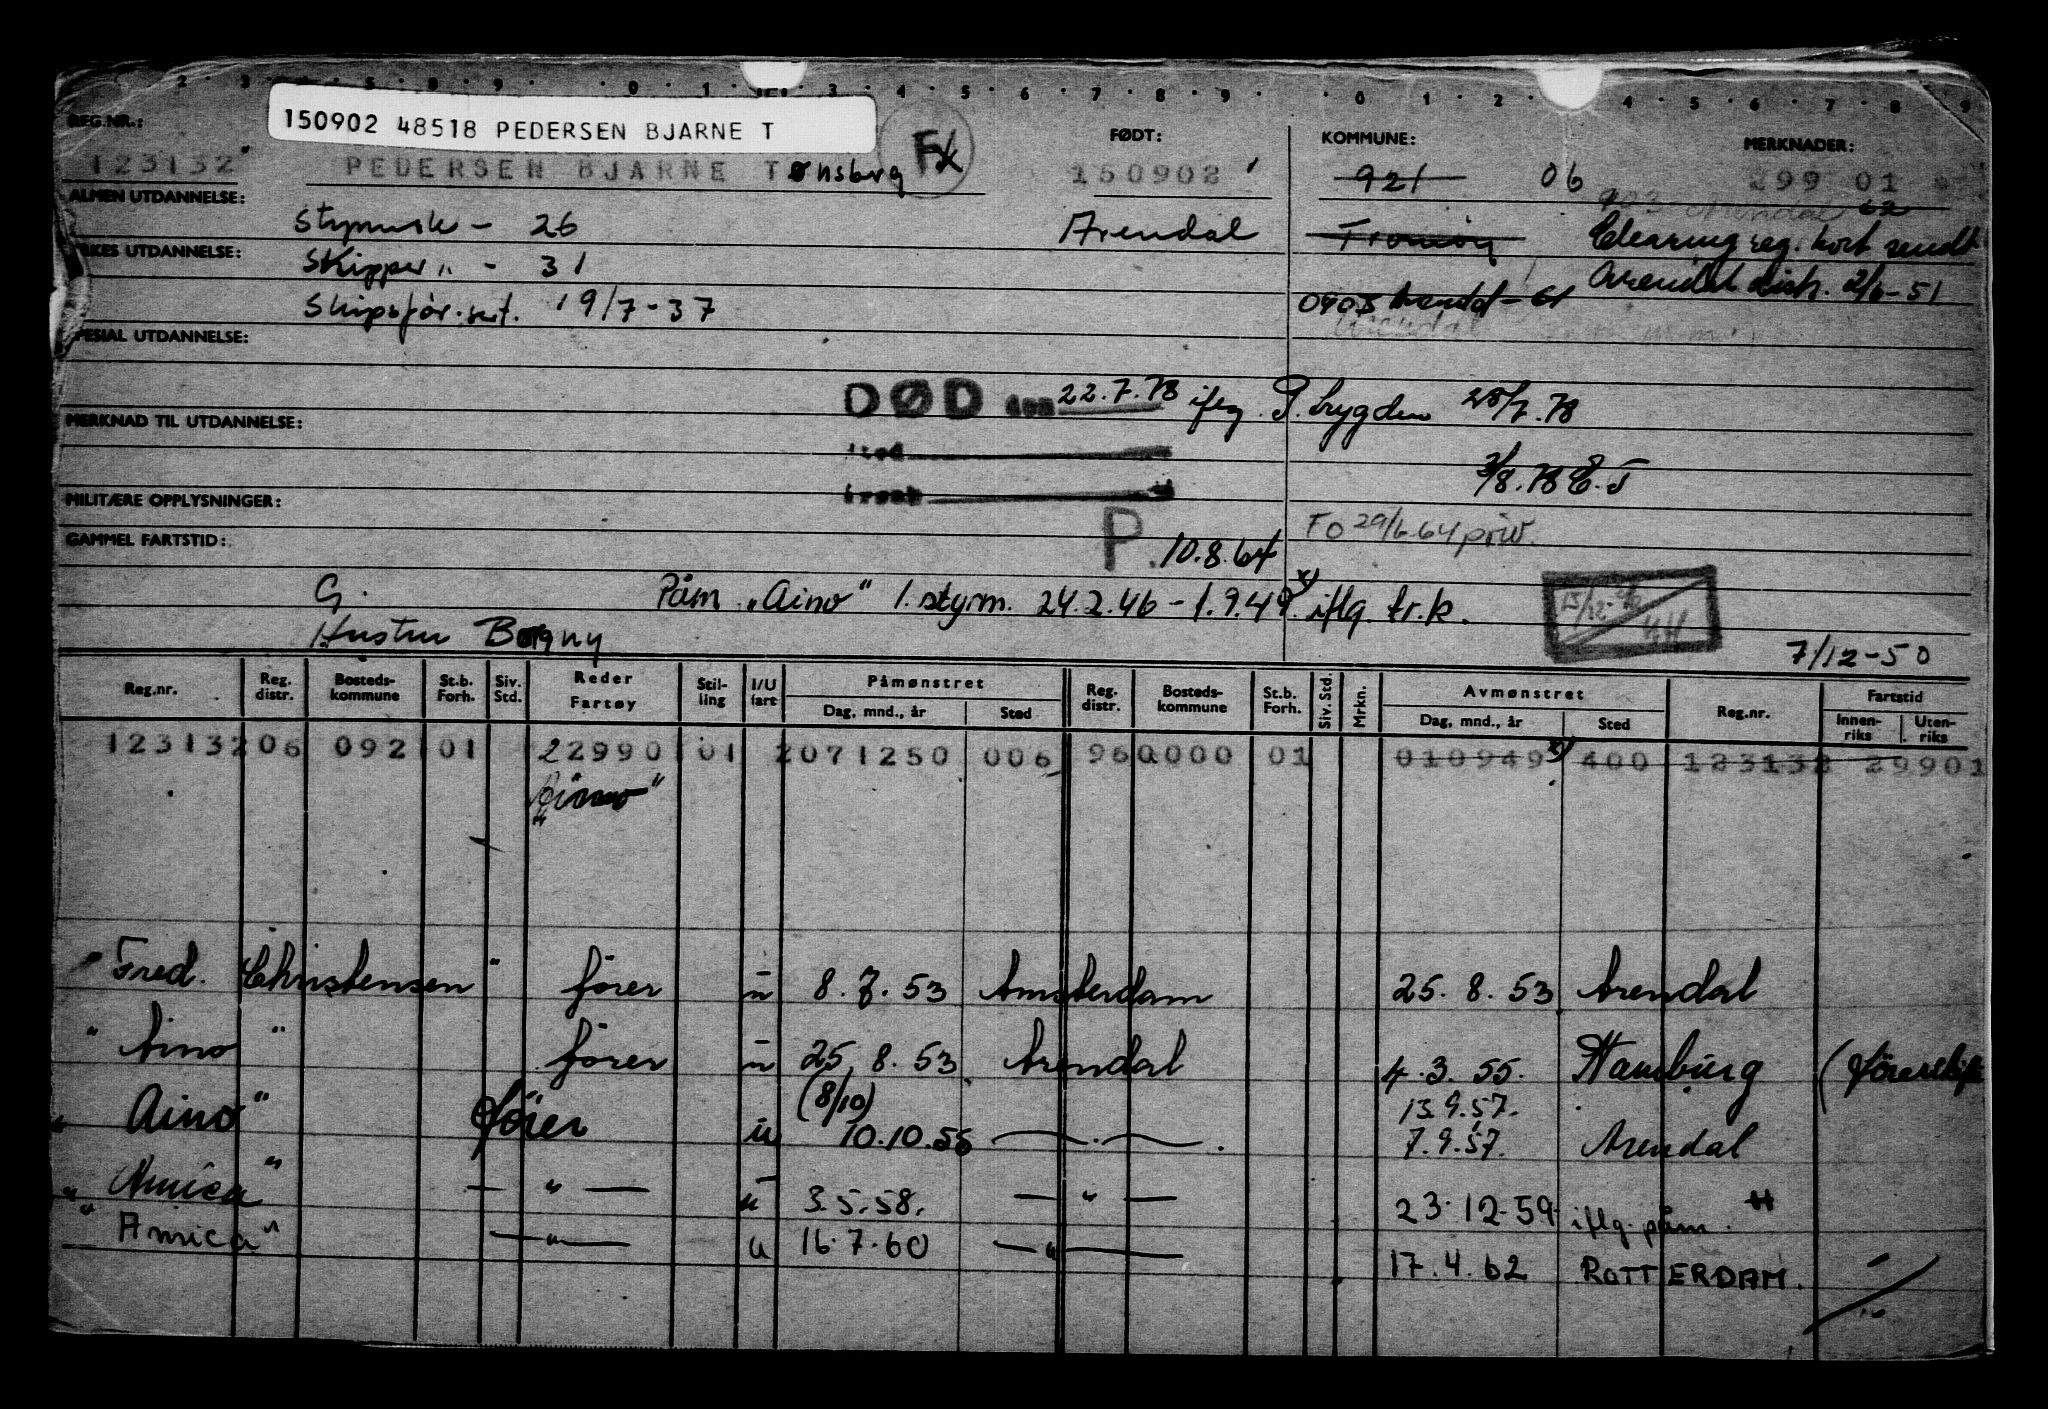 150902 48518 PEDERSEN BJARNE T
Fx
REG.NR.: FØDT: KOMMUNE: MERKNADER:
123132 PEDERSEN BJARNE Tønsberg 150902 921 06 299 01
ALMEN UTDANNELSE: 903 Arendal 62
Styrmsk - 26 Arendal Tromöy Clearing reg. kort sendt
YRKES UTDANNELSE:
Skipper " - 31 Arendal distr. 2/6-51
Skipsför.sert. 19/7-37 0903 Arendal - 61
Arendal
SPESIAL UTDANNELSE:
DØD den 22.7.78 iflg. P. trygden 28/7.78
MERKNAD TIL UTDANNELSE:
sted
3/8.78 E.J
årsak
MILITÆRE OPPLYSNINGER:
P. 10.8.64 FO 29/6.64 priv.
GAMMEL FARTSTID:
G. Påm "Aino" 1. styrm. 24.2.46 - 1.9.49 x) iflg. tr.k.
Hustru Borgny 7/12-50
Reg.nr. Reg. distr. Bosteds-kommune St.b. Forh. Siv. Std. Reder Fartøy Stil-ling I/U fart Påmønstret Dag, mnd., år Sted Reg. distr. Bosteds-kommune St.b. Forh. Siv. Std. Mrkn. Avmønstret Dag, mnd., år Sted Reg.nr. Fartstid Innen-riks Uten-riks
123132 06 092 01 22990 01 2 071250 006 96 0000 01 010949 x) 400 123132 29901
"Aino"
"Fred. Christensen" förer u 8.7.53 Amsterdam 25.8.53 Arendal
"Aino" förer u 25.8.53 Arendal 4.3.55. Hamburg (förerskift
(8/10) 13.9.57.
"Aino" förer u 10.10.56 — . — . 7.9.57. Arendal
"Amica" — " — u 3.5.58. — " — 23.12.59 iflg. påm. H
"Amica" — " — u 16.7.60 — " — 17.4.62 ROTTERDAM.